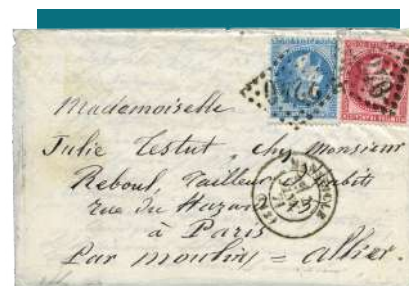 Mademoiselle
Julie Testut, chez Monsieur
Reboul, Tailleur d'habits
rue du Hazard
à Paris
Par Moulins = Allier.